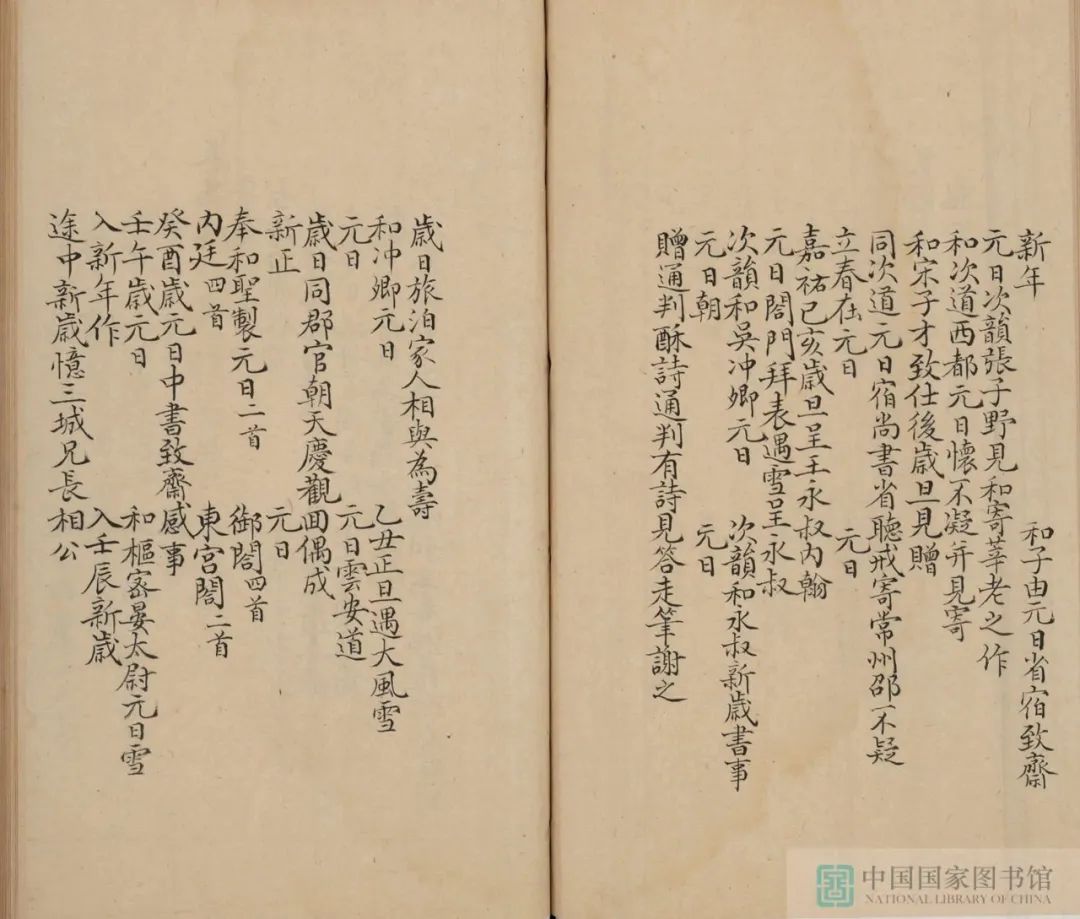 新年 和子由元日省宿致齋
元日次韻張子野見和寄莘老之作
和次道西都元日懷不凝并見寄
和宋子才致仕後歲旦見贈
同次道元日宿尚書省聽戒寄常州邵不疑
立春在元日 元日
嘉祐己亥歲旦呈王永叔内翰
元日閤門拜表遇雪呈永叔
次韻和吳冲卿元日 次韻和永叔新歲書事
元日朝 元日
贈通判酥詩通判有詩見答走筆謝之
歲日旅泊家人相與為壽
和冲卿元日 乙丑正旦遇大風雪
元日 元日雲安道
歲日同郡官朝天慶觀回偶成
新正 元日
奉和聖製元日二首 御閤四首
内廷四首 東宮閤二首
癸酉歲元日中書致齋感事
壬午歲元日 和樞密晏太尉元日雪
入新年作 入壬辰新歲
途中新歲憶三城兄長相公
中国国家图书馆
NATIONAL LIBRARY OF CHINA